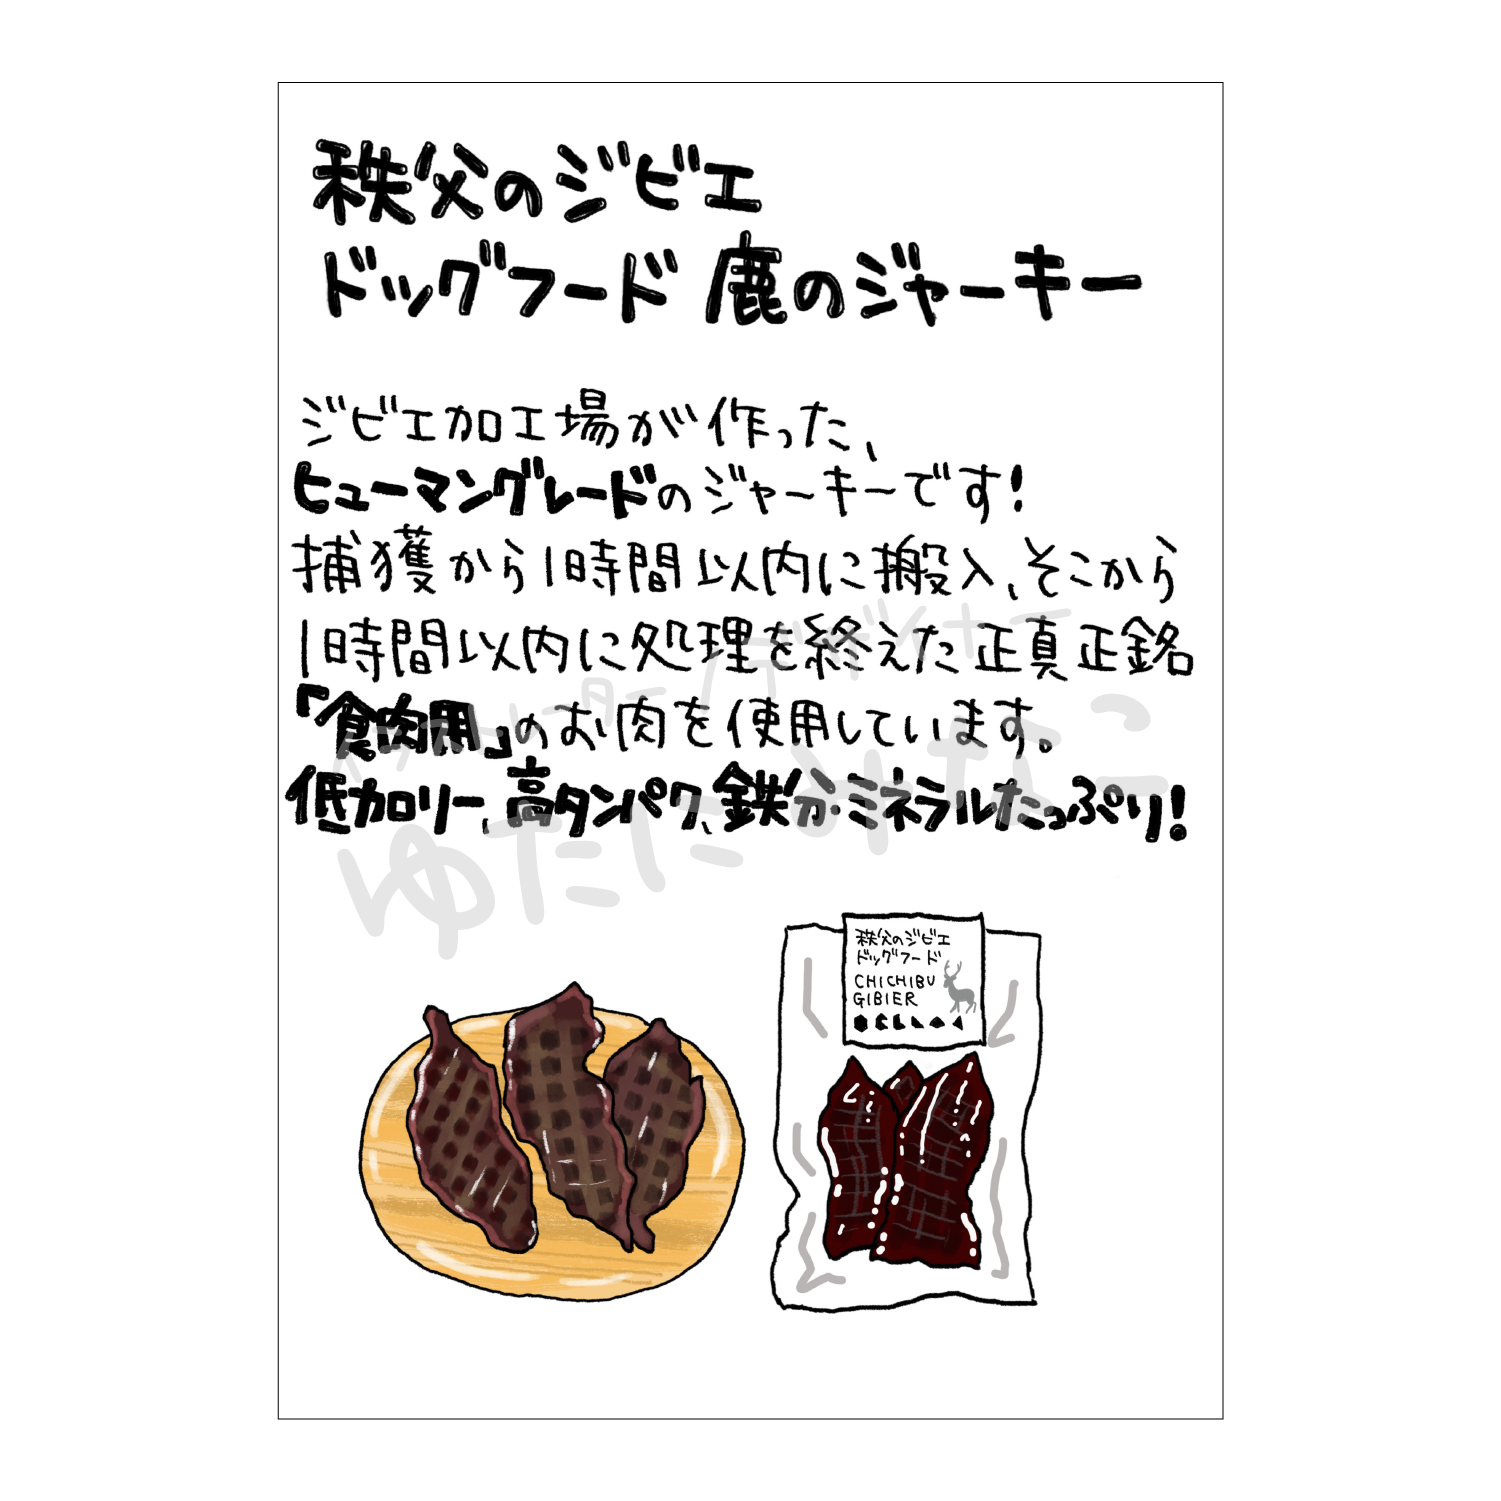 秩父のジビエ
ドッグフード 鹿のジャーキー
ジビエ加工場が作った、
ヒューマングレードのジャーキーです!
捕獲から1時間以内に搬入、そこから
1時間以内に処理を終えた正真正銘
「食肉用」のお肉を使用しています。
低カロリー、高タンパク、鉄分・ミネラルたっぷり!
イラストレーター/デザイナー
ゆたにみなこ
秩父のジビエ
ドッグフード
CHICHIBU
GIBIER